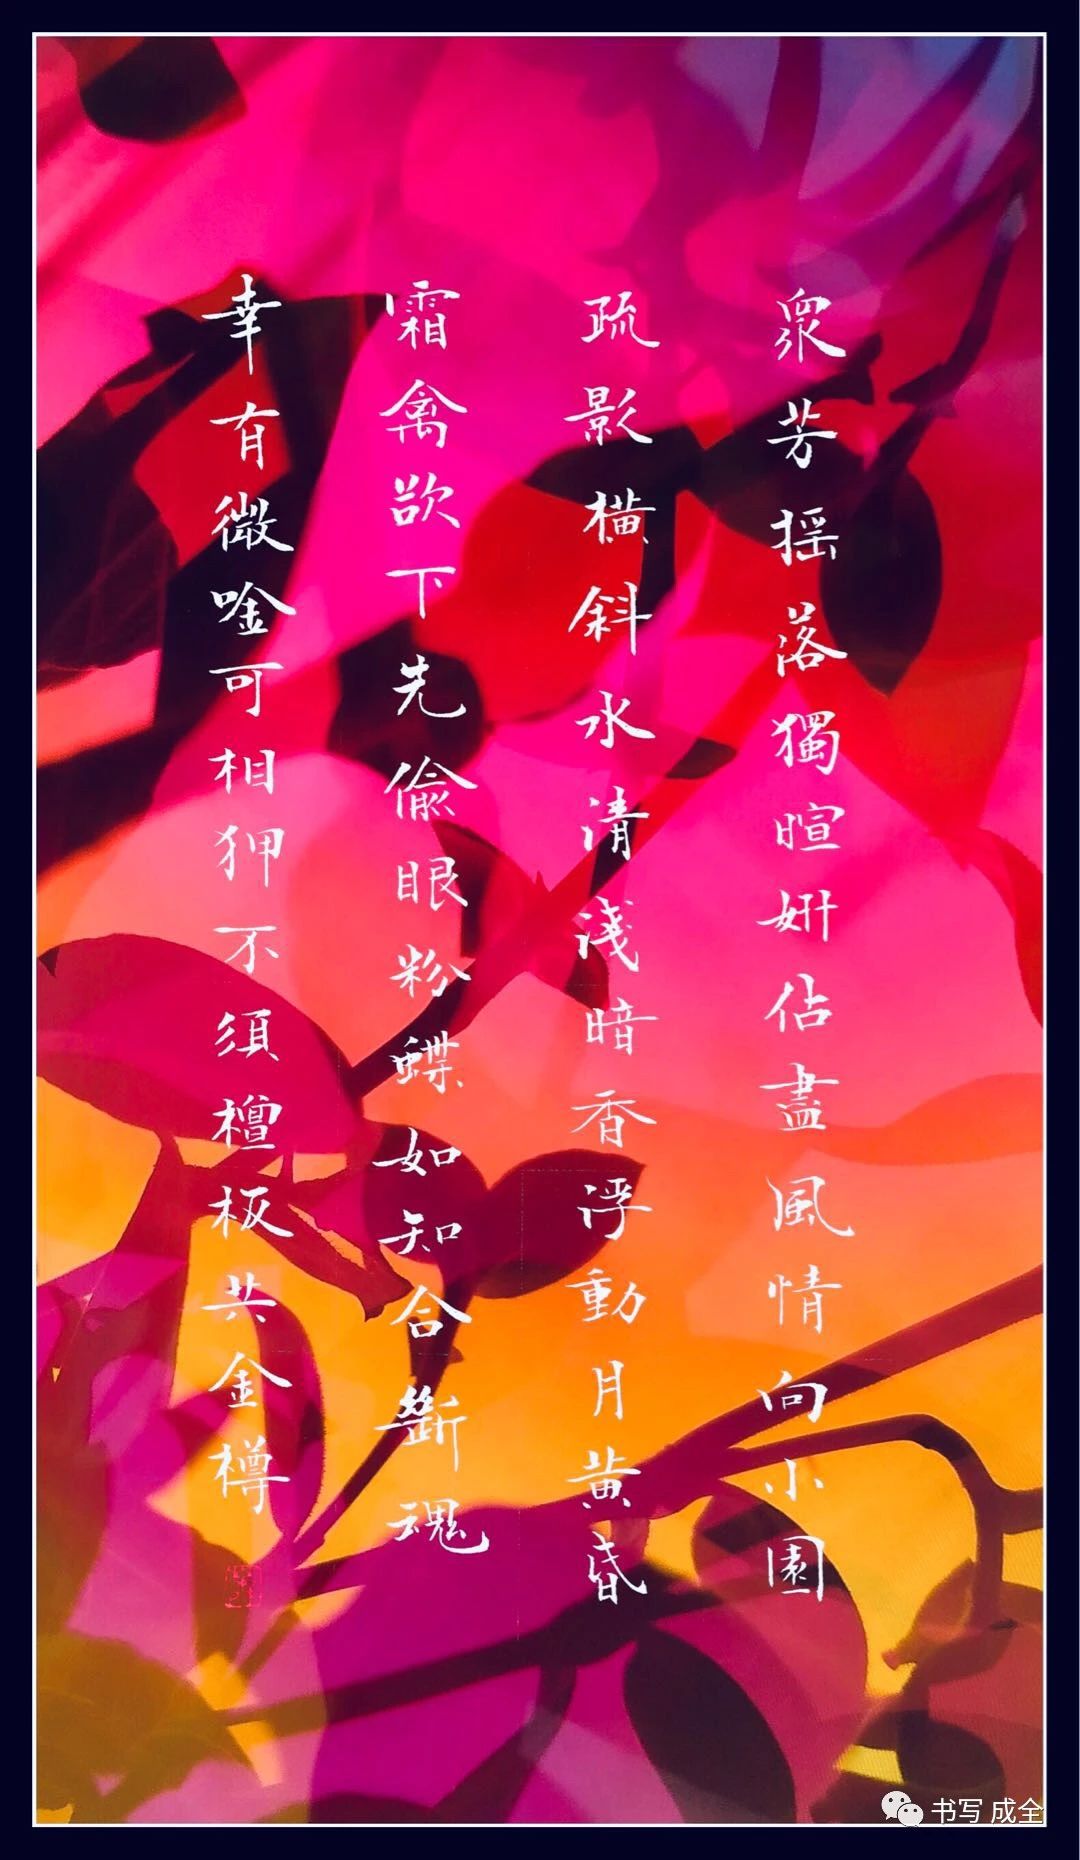 衆芳摇落獨暄妍佔盡風情向小園
疏影橫斜水清淺暗香浮動月黄昏
霜禽欲下先偷眼粉蝶如知合斷魂
幸有微唫可相狎不須檀板共金樽
书写 成全